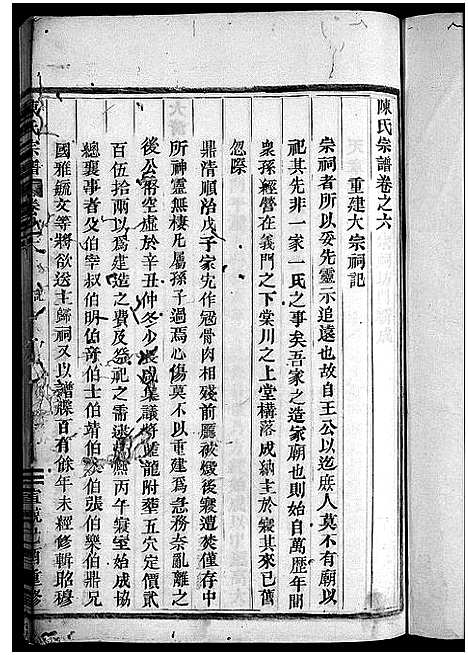 陳氏宗譜卷之六
重建大宗祠記
宗祠者所以妥先靈示追遠也故自王公以迄庶人莫不有廟以
祀其先非一家一氏之事矣吾家之造家廟也則始自萬歷年間
衆孫經營在義門之下棠川之上堂構落成納主於寢其來已
忽際
鼎清順治戊子家宄作冦骨肉相殘前廳被燬後寢遭焚僅存中
所神靈無棲凡屬孫子過焉心傷莫不以重建為急務奈亂離之
後公帑空虛於辛丑仲冬少長咸集議將雎龍附葬五穴定價貳
百伍拾兩以為建造之費及祭祀之需逃丙午寢室始成協
總襄事者父伯宰叔伯明伯竒伯士伯靖伯衣伯張伯樂伯鼎兄
國雅毓文等將欲送主歸祠又以譜牒百有餘年未經修輯昭穆
氏宗譜